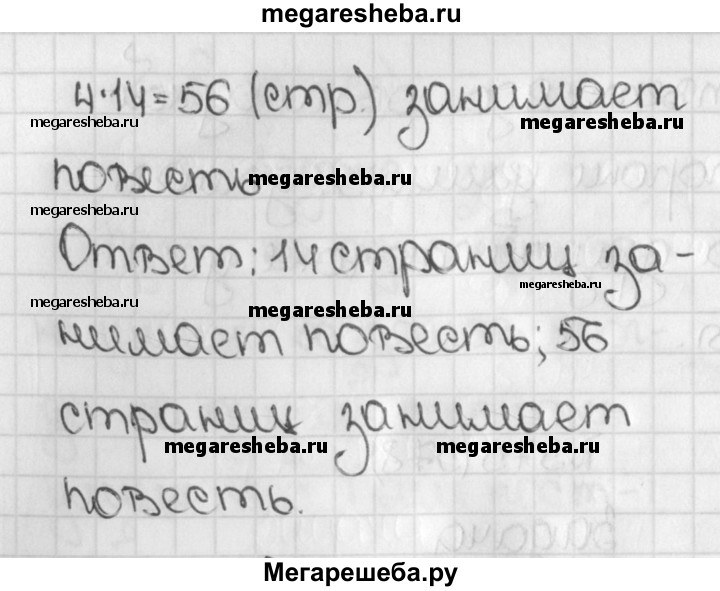 megaresheba.ru
4·14=56 (стр.) занимает
megaresheba.ru megaresheba.ru
повесть
megaresheba.ru
megaresheba.ru
Ответ: 14 страниц за-
megaresheba.ru
megaresheba.ru megaresheba.ru
нимает повесть; 56
страниц занимает
megaresheba.ru megaresheba.ru
повесть.
Мегарешеба.ру